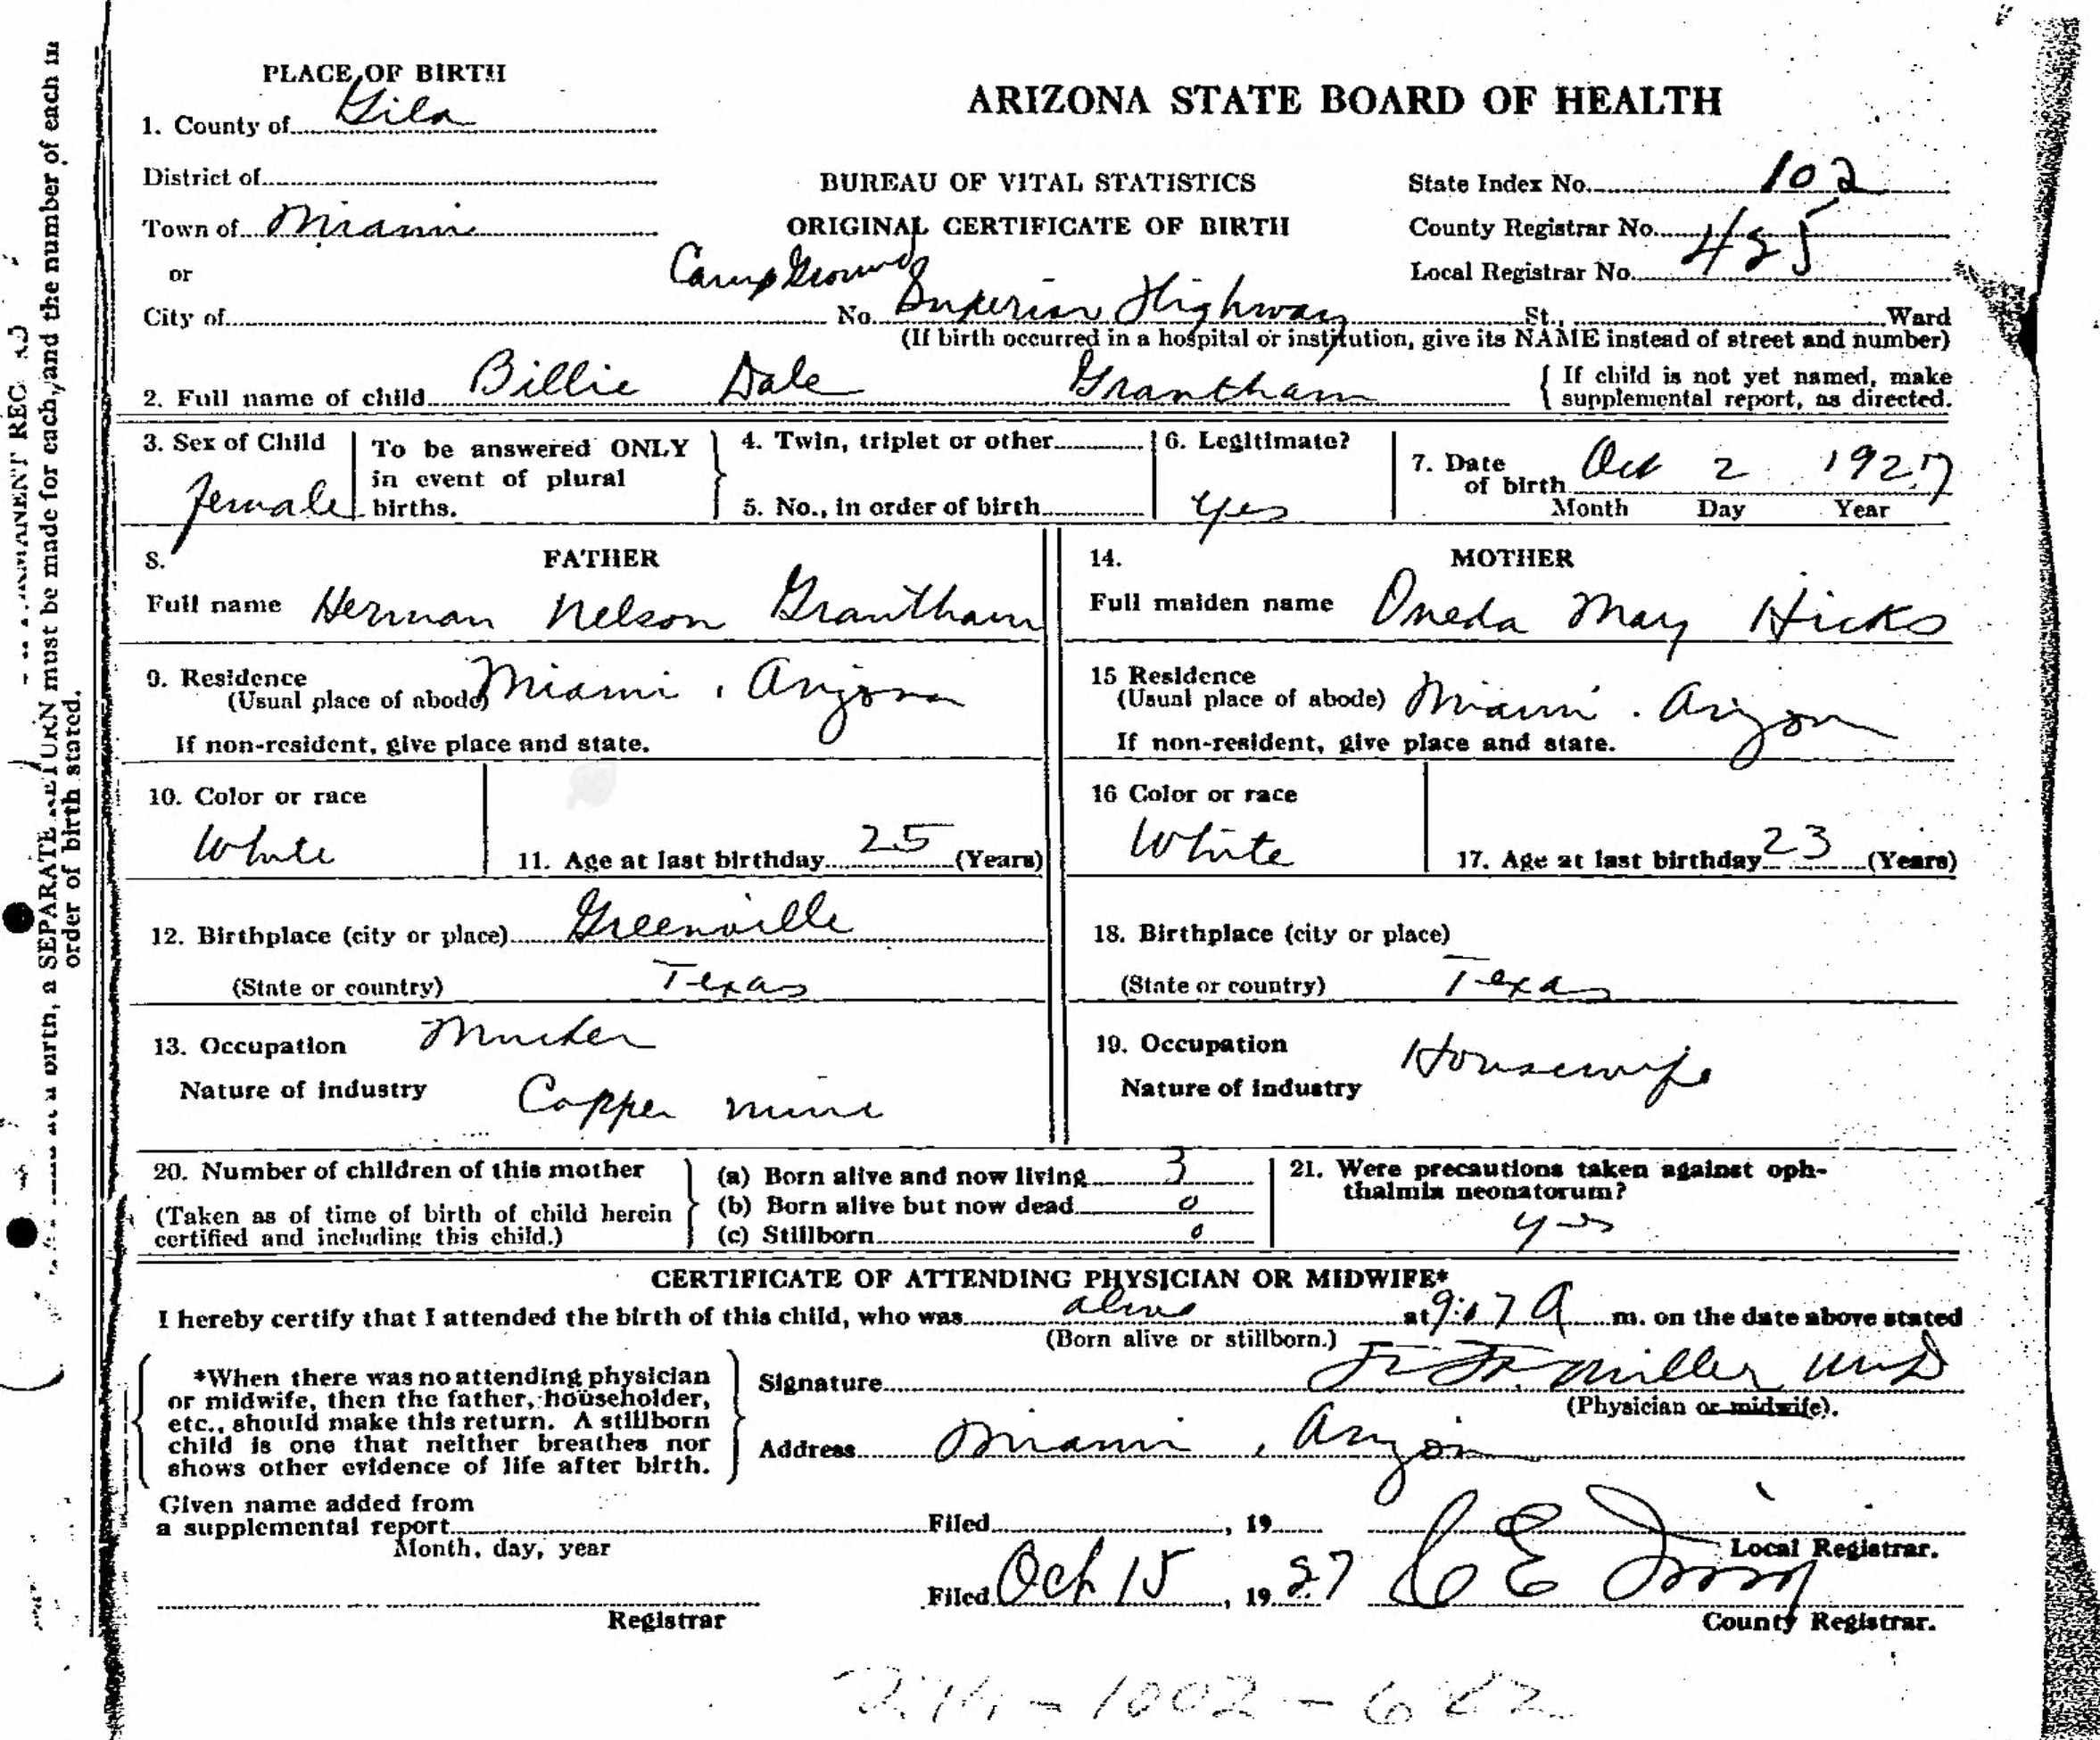 PLACE OF BIRTH
ARIZONA STATE BOARD OF HEALTH
1. County of Gila
District of
BUREAU OF VITAL STATISTICS
State Index No. 102
Town of Miami
ORIGINAL CERTIFICATE OF BIRTH
County Registrar No. 425
or
Camp Ground
Local Registrar No.
City of No. Superior Highway St., Ward
(If birth occurred in a hospital or institution, give its NAME instead of street and number)
2. Full name of child Billie Dale Grantham
{ If child is not yet named, make
supplemental report, as directed.
3. Sex of Child
female
To be answered ONLY
in event of plural
births.
4. Twin, triplet or other
5. No., in order of birth
6. Legitimate?
Yes
7. Date
of birth Oct 2 1927
Month Day Year
8. FATHER
Full name Herman Nelson Grantham
9. Residence
(Usual place of abode) Miami, Arizona
If non-resident, give place and state.
10. Color or race
White
11. Age at last birthday 25 (Years)
12. Birthplace (city or place) Greenville
(State or country) Texas
13. Occupation Mucker
Nature of industry Copper mine
14. MOTHER
Full maiden name Oneda May Hicks
15 Residence
(Usual place of abode) Miami. Arizon
If non-resident, give place and state.
16 Color or race
White
17. Age at last birthday 23 (Years)
18. Birthplace (city or place)
(State or country) Texas
19. Occupation Housewife
Nature of industry
20. Number of children of this mother
(Taken as of time of birth of child herein
certified and including this child.)
(a) Born alive and now living 3
(b) Born alive but now dead 0
(c) Stillborn 0
21. Were precautions taken against oph-
thalmia neonatorum?
yes
CERTIFICATE OF ATTENDING PHYSICIAN OR MIDWIFE*
I hereby certify that I attended the birth of this child, who was alive at 9:17 A m. on the date above stated
(Born alive or stillborn.)
*When there was no attending physician
or midwife, then the father, householder,
etc., should make this return. A stillborn
child is one that neither breathes nor
shows other evidence of life after birth.
Signature Miller MD
(Physician or midwife).
Address Miami, Arizon
Given name added from
a supplemental report
Month, day, year
Filed , 19
Local Registrar.
Filed Oct 15, 1927 C E
Registrar
County Registrar.
order of birth stated.
birth, a SEPARATE RETURN must be made for each, and the number of each in